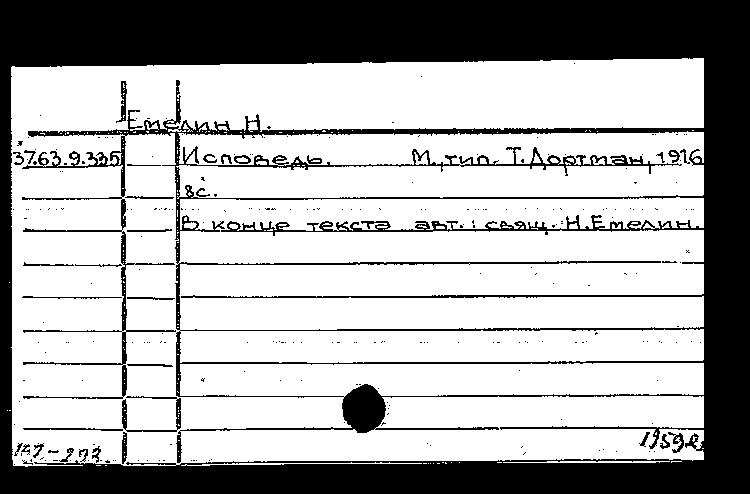 Емелин Н.
37.63.9.335 Исповедь. М., тип. Т. Дортман, 1916
8с.
В конце текста авт.: свящ. Н. Емелин.
1959г.